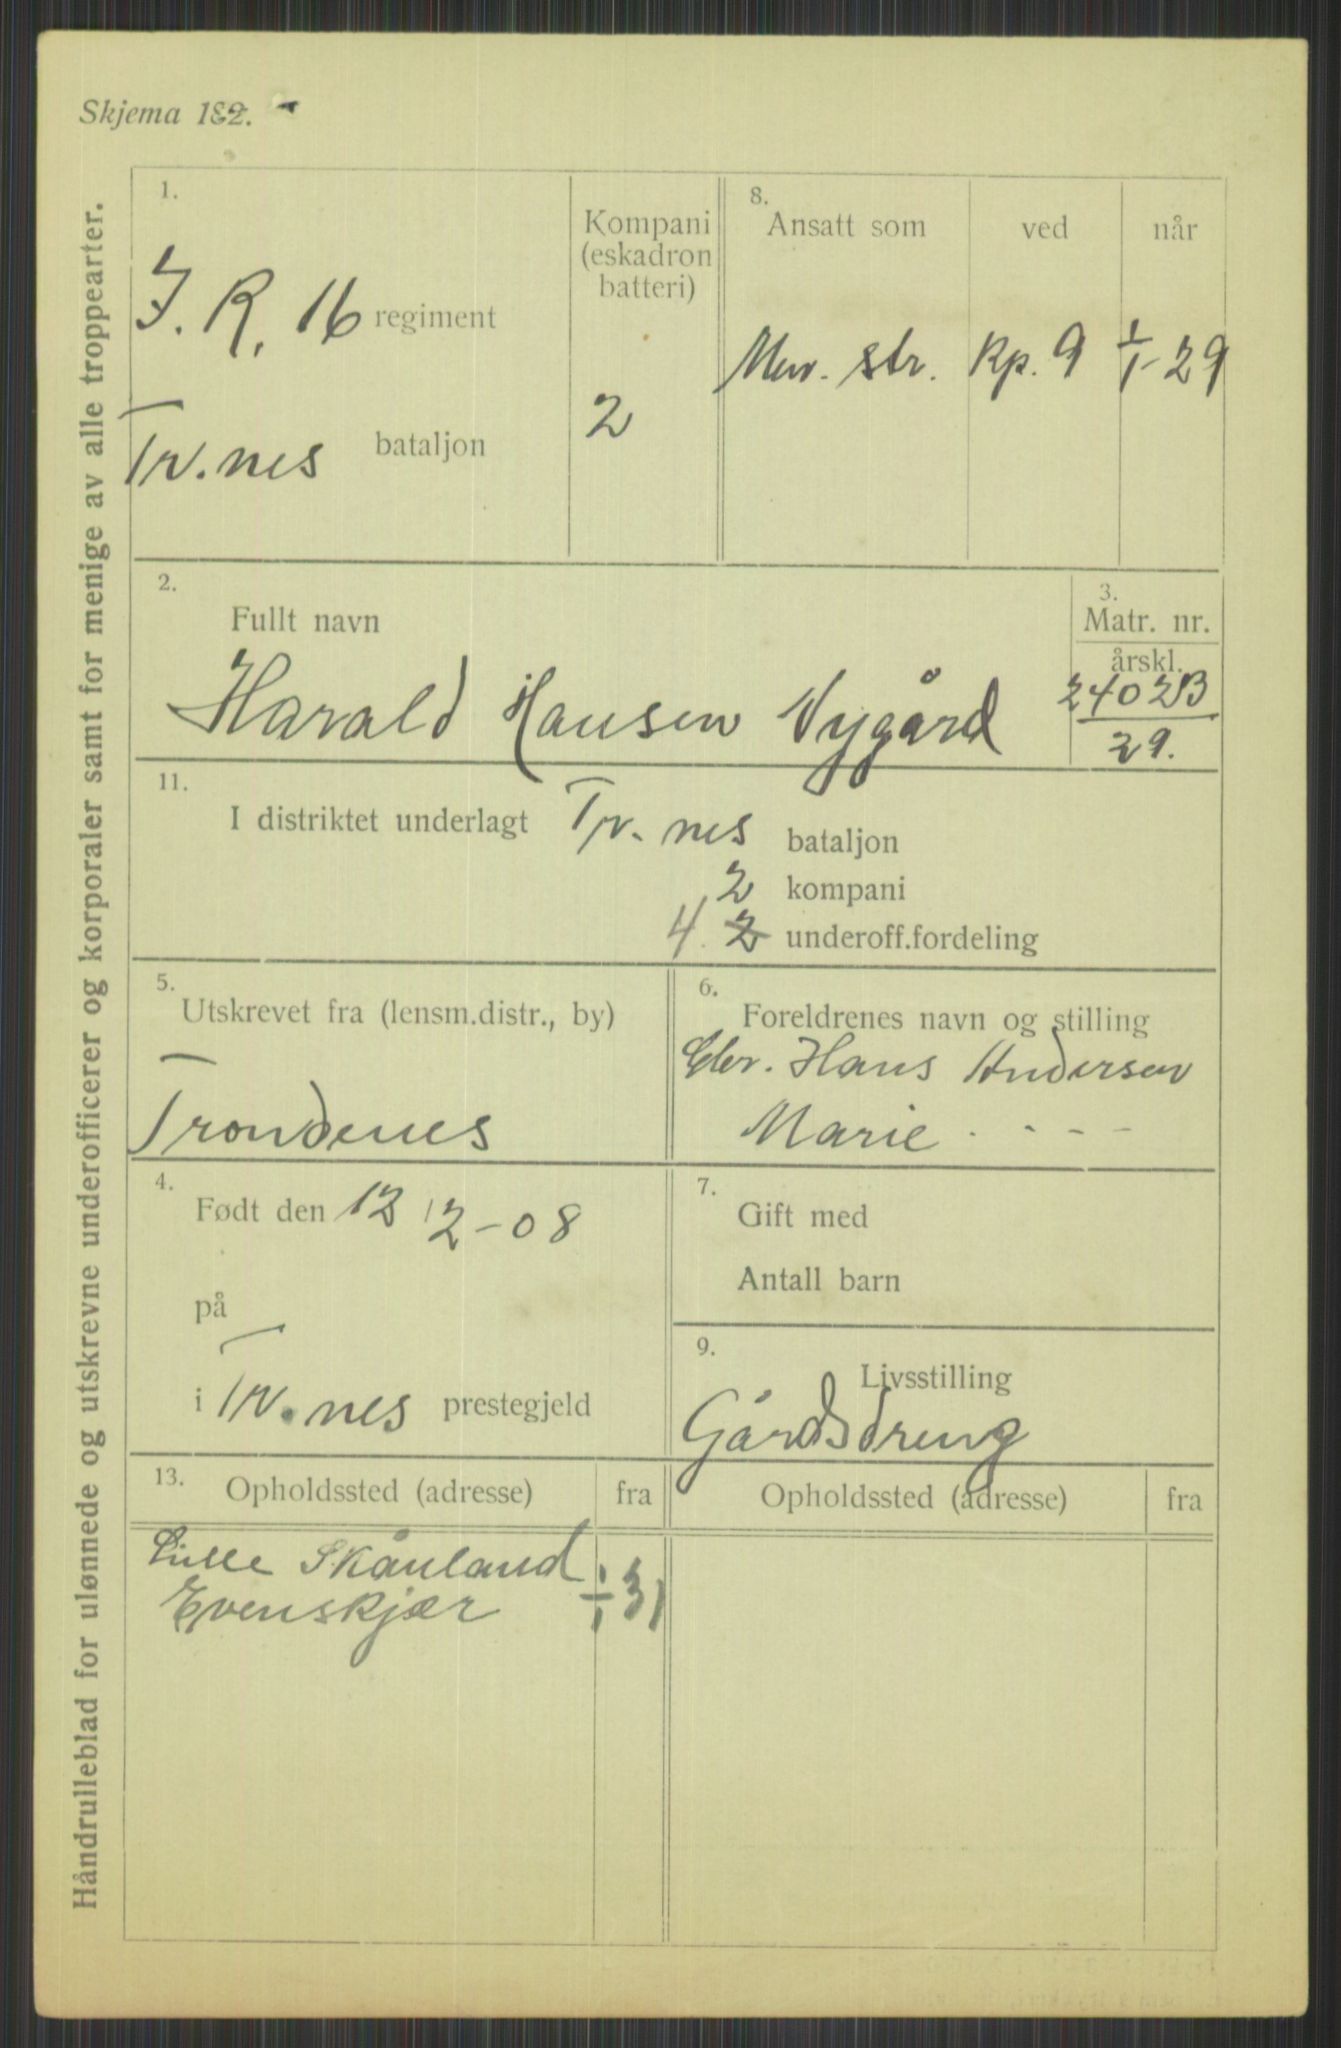 Skjema 182.
Håndrulleblad for ulønnede og utskrevne underofficerer og korporaler samt for menige av alle troppearter.
1.
J. R. 16 regiment
Tr.nes bataljon
Kompani
(eskadron
batteri)
2
8.
Ansatt som ved når
Men. str. Kp. 9 1/1-29
2.
Fullt navn
Harald Hansen Nygård
3.
Matr. nr.
årskl.
2402B
29.
11.
I distriktet underlagt Tr. nes bataljon
2 kompani
4. 2 underoff.fordeling
5.
Utskrevet fra (lensm.distr., by)
Trondenes
6.
Foreldrenes navn og stilling
Hans Andersen
Marie - - - -
4.
Født den 12/2-08
på
i Tr.nes prestegjeld
7.
Gift med
Antall barn
9.
Livsstilling
Gårdsdreng
13.
Opholdssted (adresse) fra Opholdssted (adresse) fra
Lille Skånland
Evenskjær 1/1 31